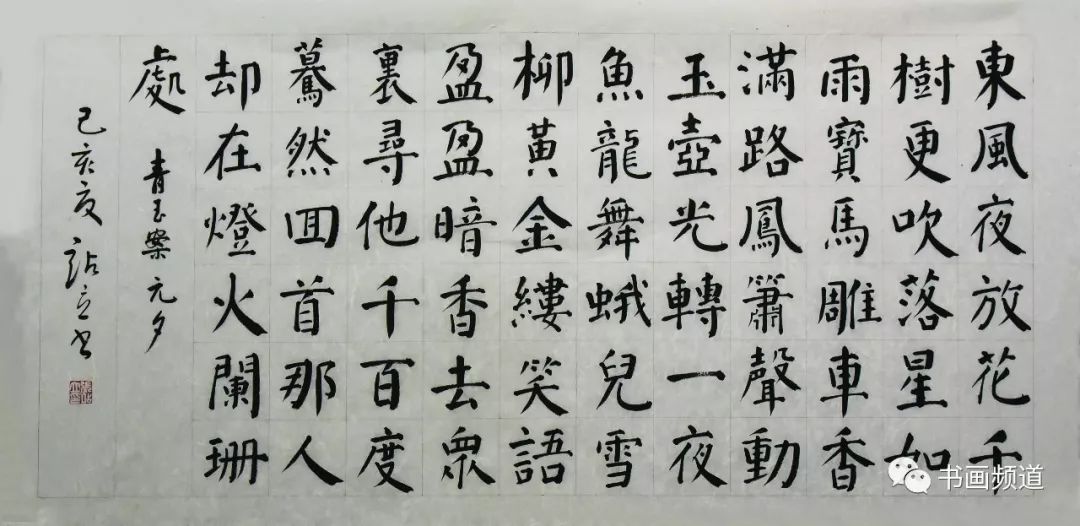 東風夜放花千
樹更吹落星如
雨寶馬雕車香
滿路鳳簫聲動
玉壺光轉一夜
魚龍舞蛾兒雪
柳黃金縷笑語
盈盈暗香去眾
裏尋他千百度
驀然回首那人
却在燈火闌珊
處 青玉案元夕
己亥夏
书画频道